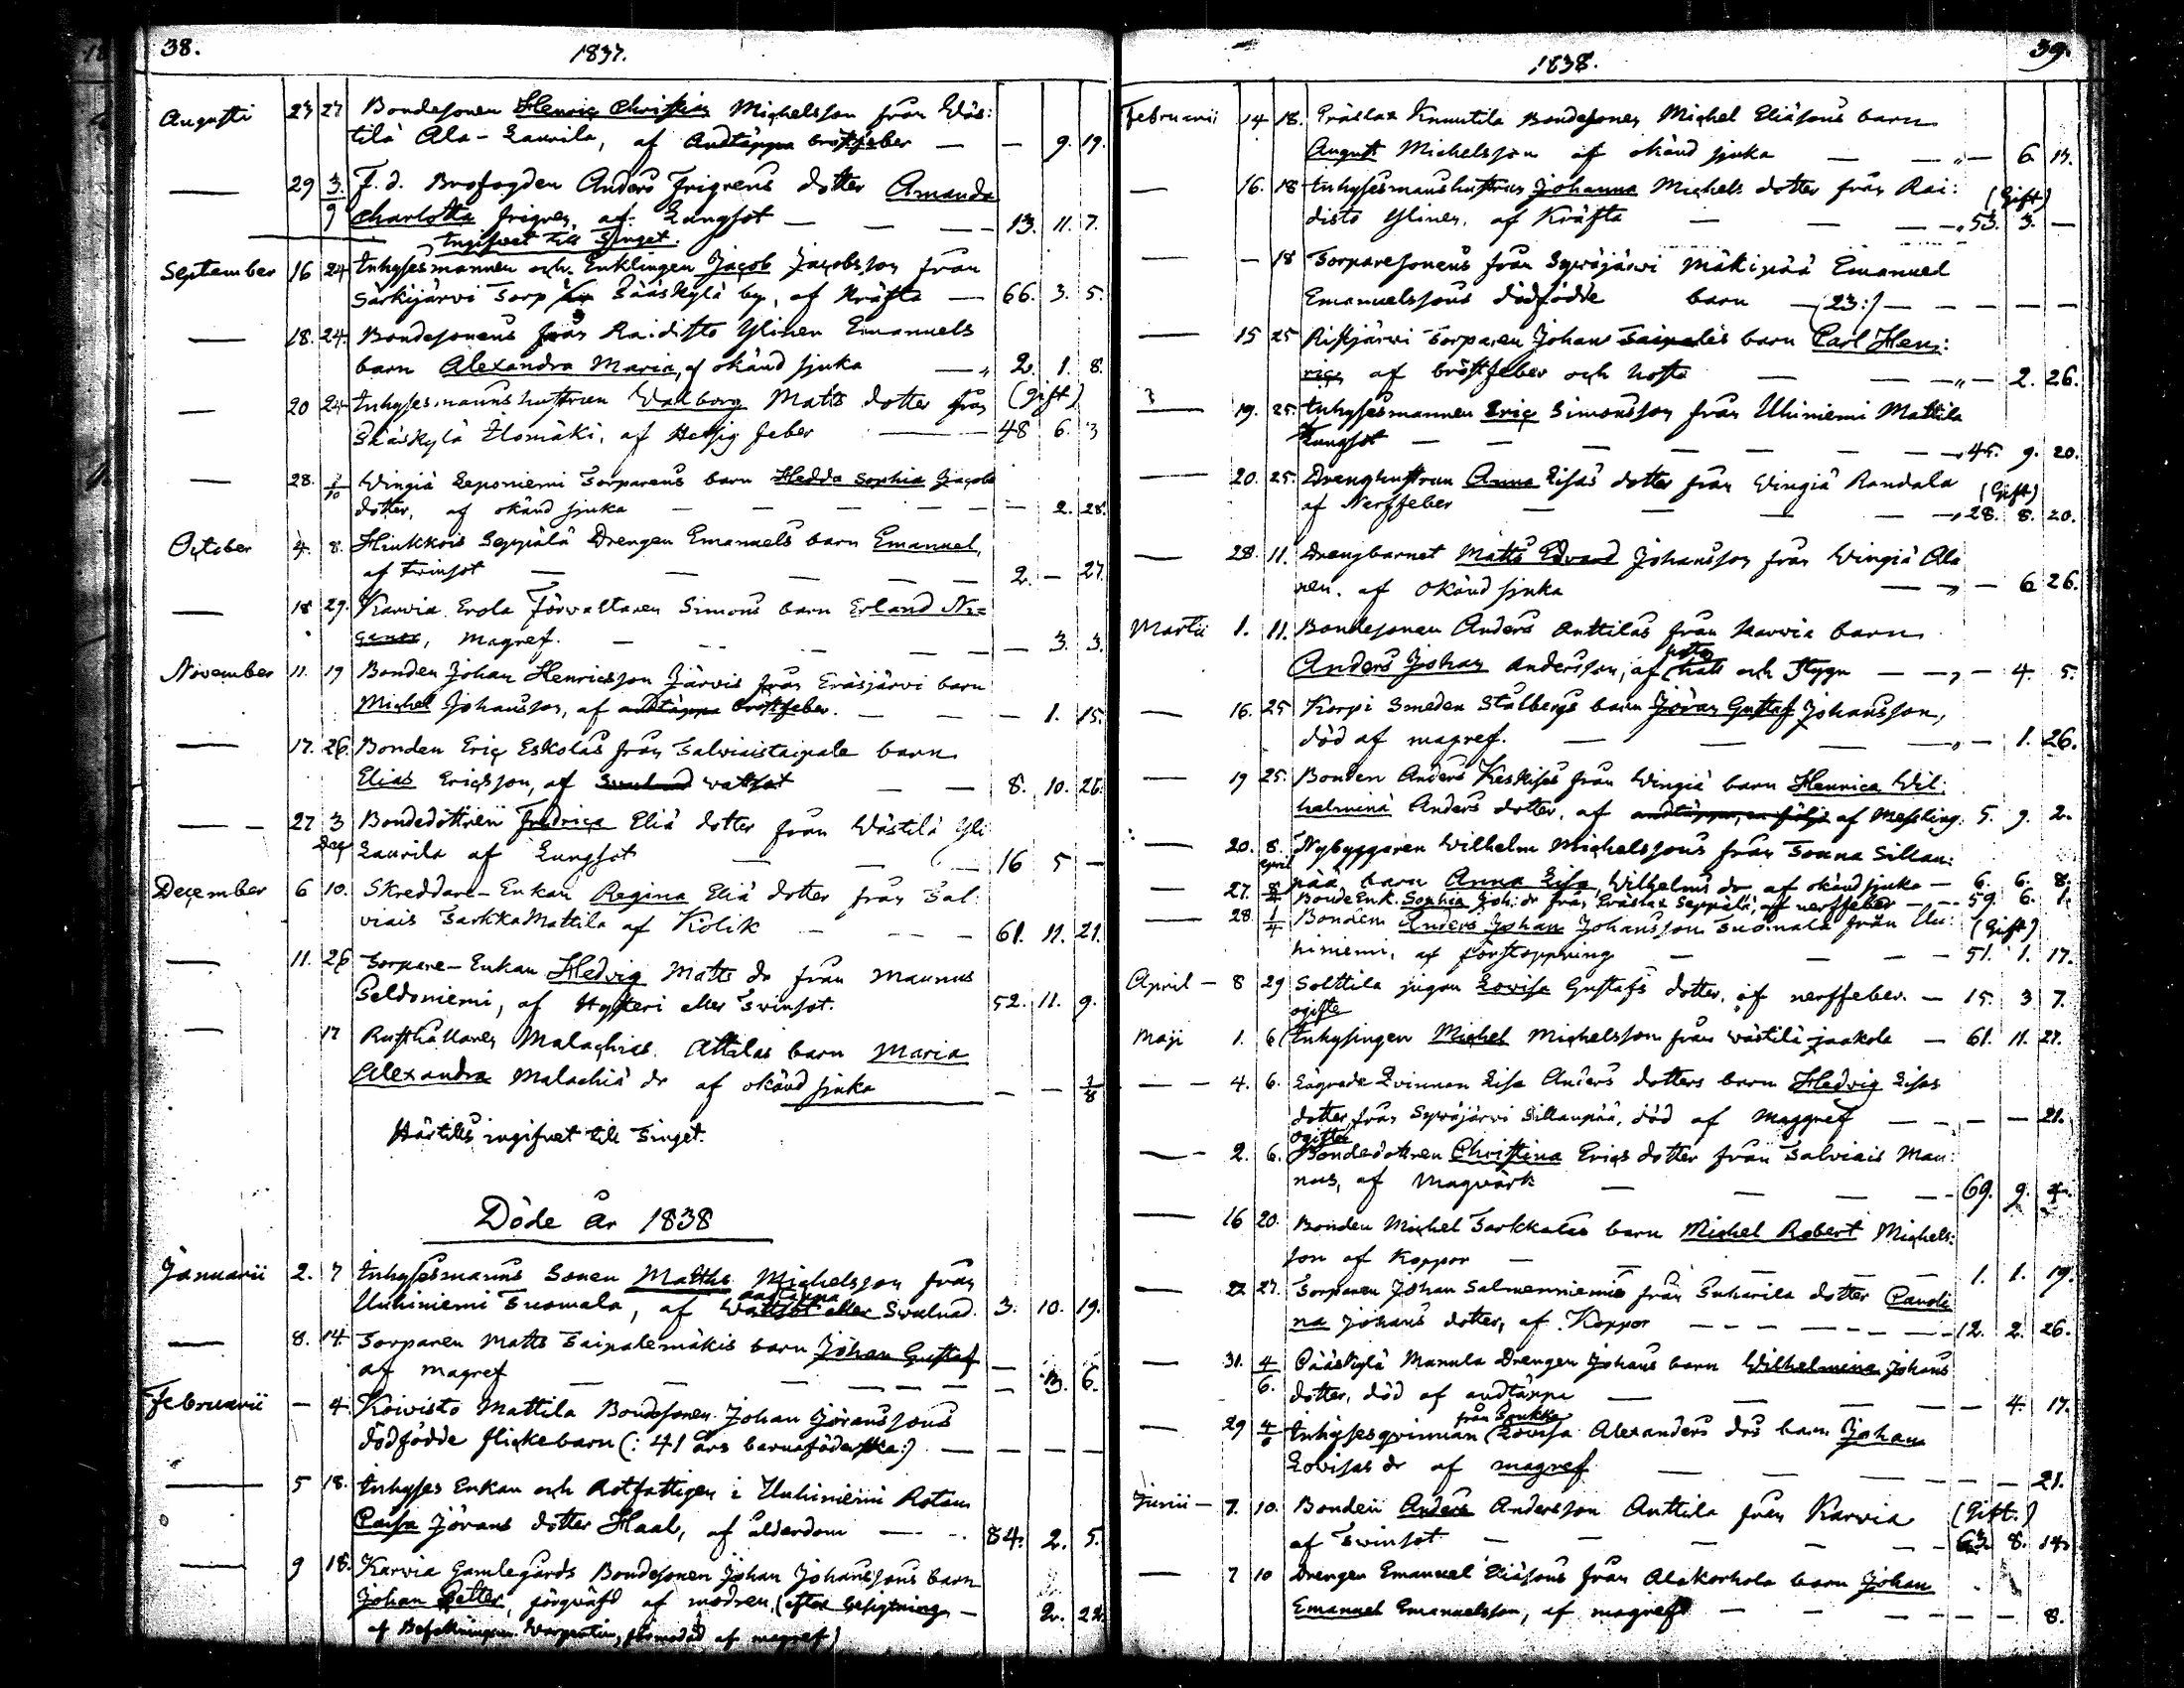 38.
1837.
Augusti 23 27 Bondesonen Henric Christian Michelsson från Wäs:
tilä Ala-Laurila, af Andtäppa bröstfeber — — 9. 19.
— 29 3/9 F. d. Brofogden Anders Frigrens dotter Amanda
Charlotta Frigren, af Lungsot — — — 13. 11. 7.
Ingifvet till Tinget.
September 16 24 Inhysesmannen och Enklingen Jacob Jacobsson från
Särkijärvi Torp Sääskylä by, af Kräfta — 66. 3. 5.
— 18. 24. Bondesonens från Raidisto Ylinen Emanuels
barn Alexandra Maria, af okänd sjuka — „ 2. 1. 8.
— 20 24 Inhysesmanns hustrun Walborg Matts dotter från (Gift)
Sääskylä Ilomäki, af Hetsig feber — 48 6. 3
— 28. 1/10 Wingiä Leponiemi Torparens barn Hedda Sophia Jacobs
dotter, af okänd sjuka — — — — — 2. 28.
October 4. 8. Hiukkois Seppälä Drengen Emanuels barn Emanuel,
af Twinsot — — — — — 2. — 27.
— 18 29. Karvia Erola Förvaltaren Simons barn Erland Ni=
canor, magref. — — — — — 3. 3.
November 11. 19 Bonden Johan Henricsson Järvis från Eräsjärvi barn
Michel Johansson, af andtäppa bröstfeber. — — — 1. 15.
— 17. 26. Bonden Eric Eskolas från Salviaistaipale barn
Elias Ericsson, af wattsot — — 8. 10. 26.
— 27 3 Dec Bondedottren Fredrica Eliä dotter från Wästilä Yli
Laurila af Lungsot — — — 16 5 —
December 6 10. Skreddare-Enkan Regina Eliä dotter från Sal:
viais Sarkka Mattila af Kolik — — — 61. 11. 21.
— 11. 26 Torpare-Enkan Hedvig Matts dr från Maunus
Peldoniemi, af Hysteri eller Twinsot. 52. 11. 9.
— 17 Rusthållaren Malachies Attilas barn Maria
Alexandra Malachiä dr af okänd sjuka — — 1/8
Härtills ingifvet till Tinget.
Döde År 1838
Januarii 2. 7 Inhysesmanns Sonen Matths Michelsson från
andtäppa
Uuhiniemi Tuomala, af Wattsot eller Swulnad. 3. 10. 19.
— 8. 14. Torparen Matts Taipalemäkis barn Johan Gustaf
af magref — — — — — 3. 6.
Februarii — 4. Koivisto Mattila Bondesonen Johan Göranssons
dödfödde flickebarn (: 41 års barnaföderska:) — — — —
— 5 18. Inhyses Enkan och Rotfattigen i Uuhiniemi Rotan
Caisa Jörans dotter Haal, af ålderdom — 84. 2. 5.
— 9 18. Karvia Gamlegårds Bondesonen Johan Johanssons barn
Johan Petter, förqväfd af modren, (efter besigtning — 2. 22.
af magref)
39.
1838.
Februarii 14 18. Erästax Knuutila Bondesonen Michel Eliäsons barn
August Michelsson af okänd sjuka — — „ — 6 13.
— 16. 18 Inhysesmanshustrun Johanna Michels dotter från Rai: (Gift)
disto Ylinen, af Kräfta — — — „ 53. 3. —
— — 18 Torparesonens från Sywäjärwi Mäkipää Emanuel
Emanuelssons dödfödde barn — (23:) — — — —
— 15 25 Ristjärvi Torparen Johan Taipales barn Carl Hen:
ric, af bröstfeber och hosta — — — „ — 2. 26.
— 19. 25. Inhysesmannen Eric Simonsson från Uhiniemi Mattila
Lungsot — — — — — — „ 45. 9. 20.
— 20. 25. Drenghustrun Anna Lisas dotter från Wingiä Randala (Gift)
af Nerffeber — — — — 28. 8. 20.
— 28. 11. Drengbarnet Matts Edvard Johansson från Wingiä Ala
nen, af okänd sjuka — „ — 6 26.
Martii 1. 11. Bondesonen Anders Anttilas från Karvia barn
Anders Johan Andersson, af hosta och Stygn — — „ — 4. 5.
— 16. 25 Korpi Smeden Stålbergs barn Jöran Gustaf Johansson,
död af magref. — — — — „ — 1. 26.
— 19 25. Bonden Anders Keskises från Wingiä barn Henrica Wil:
halmina Anders dotter, af andtäppa, en följd af Messling. 5. 9. 2.
— 20. 8. april Nybyggaren Wilhelm Michelssons från Souna Sillan:
pää barn Anna Lisa, Wilhelms dr af okänd sjuka — 6. 6. 8.
— 27. 8/4 Bonde Enk. Sophia Joh: dr från Erästax Seppälä, af nerffeber — 59. 6. 1.
— 28. 1/4 Bonden Anders Johan Johansson Tuomala från Uu: (Gift)
hiniemi, af förstoppning — — — 51. 1. 17.
April — 8 29 Solttila pigan Lovisa Gustafs dotter, af nerffeber. — 15. 3 7.
ogifte
Maji 1. 6 Inhysingen Michel Michelsson från wästilä jaakola — 61. 11. 27.
— 4. 6. Lägrade Qvinnan Lisa Anders dotters barn Hedvig Lisas
dotter, från Sywäjärvi Sillanpää, död af Maggref — — — — 21.
ogifta
— 2. 6. Bondedottren Christina Erics dotter från Salviais Mau:
nus, af Magwärk — — — 69. 9. 4.
— 16 20. Bonden Michel Sarkkalas barn Michel Robert Michels:
son af Koppor — — — — 1. 1. 19.
— 22 27. Torparen Johan Salmenniemis från Suharila dotter Caroli
na Johans dotter, af Koppor — — — — 12. 2. 26.
— 31. 4/6. Pääskylä Manula Drengen Johans barn Wilhelmina Johans
dotter, död af andtäppa — — — — 4. 17.
från Saukko
— 29 4/6 Inhysesqvinnan Lovisa Alexanders drs barn Johan
Lovisas dr af magref — — — — 21.
Junii — 7. 10. Bonden Anders Andersson Anttila från Karvia (Gift.)
af Twinsot — — — — — 63. 8. 14.
— 7 10 Drengen Emanuel Eliäsons från Alakorhola barn Johan
Emanuel Emanuelsson, af magref — — — — — 8.